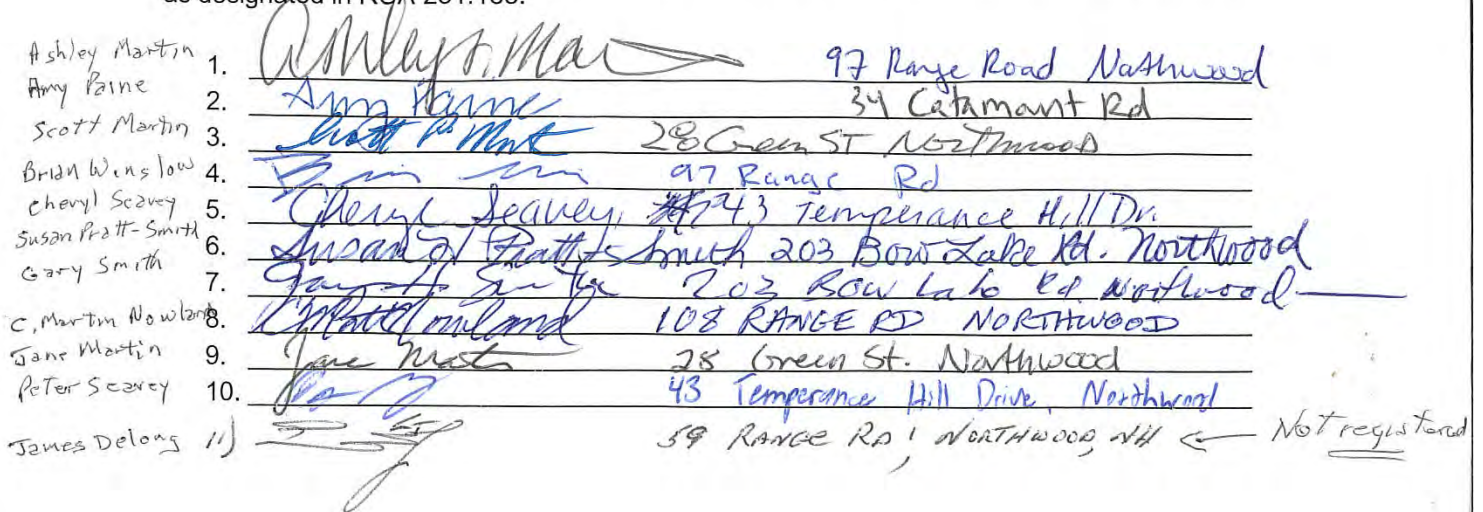 as designated in RSA 231:158.
Ashley Martin 1. Ashley S. Mar 97 Range Road Northwood
Amy Paine 2. Amy Paine 34 Catamant Rd
Scott Martin 3. Scott P. Mart 28 Green ST Northwood
Brian Winslow 4. 97 Range Rd
Cheryl Seavey 5. Cheryl Seavey, 43 Temperance Hill Dr.
Susan Pratt-Smith 6. Susan Pratt-Smith 203 Bow Lake Rd. Northwood
Gary Smith 7. 203 Bow Lake Rd Northwood
C. Martin Nowland 8. C Matt Nowland 108 RANGE RD NORTHWOOD
Jane Martin 9. Jane Martin 28 Green St. Northwood
Peter Seavey 10. 43 Temperance Hill Drive, Northwood
James Delong 11) 59 RANGE RD, NORTHWOOD, NH ← Not registered